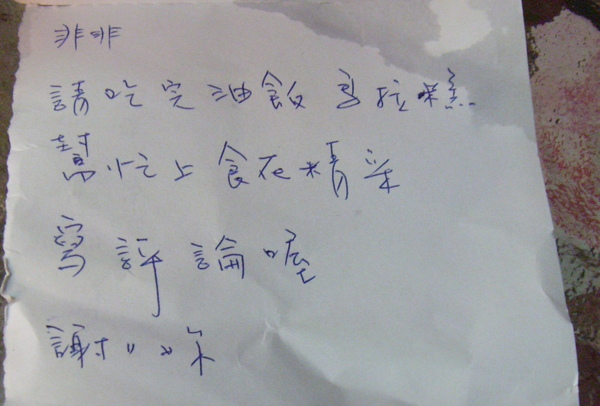 非非
請吃完油飯馬拉糕
幫忙上食在精采
寫評論喔
謝〃〃尔